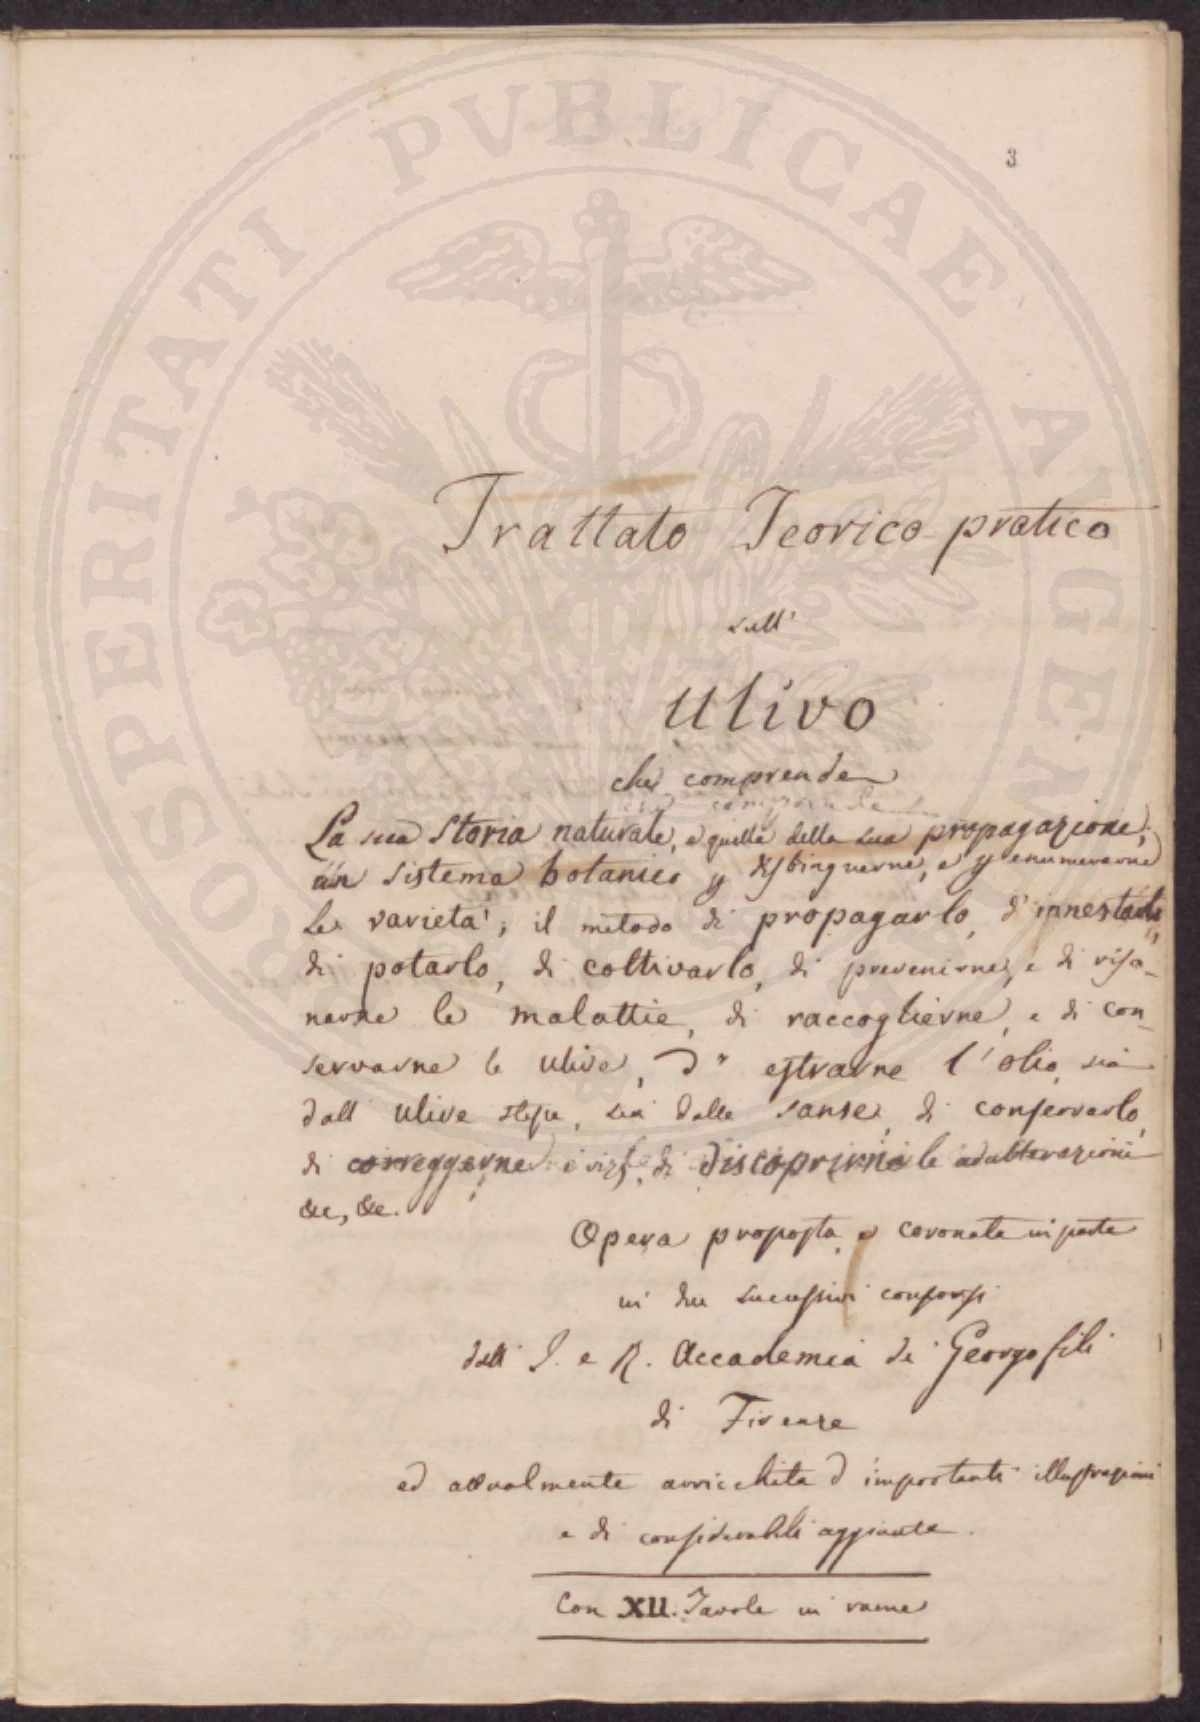 PROSPERITATI PVBLICAE AVGENDAE
3
Trattato Teorico-pratico
sull'
Ulivo
che comprende
La sua Storia naturale, e quella della sua propagazione;
un sistema botanico p distinguerne, e p enumerarne
le varietà; il metodo di propagarlo, d'innestarlo,
di potarlo, di coltivarlo, di prevenirne, e di risa-
narne le malattie, di raccoglierne, e di con-
servarne le ulive, d' estrarne l'olio, sia
dall ulive stesse, sia dalle sanse, di conservarlo,
di correggerne i vizj, di discoprirne le adulterazioni
&c, &c.
Opera proposta, e coronata in parte
in due successivi consorsi
dall' I. e R. Accademia de' Georgofili
di Firenze
ed attualmente arricchita d' importanti illustrazioni
e di considerabili aggiunte.
Con XII. Tavole in rame